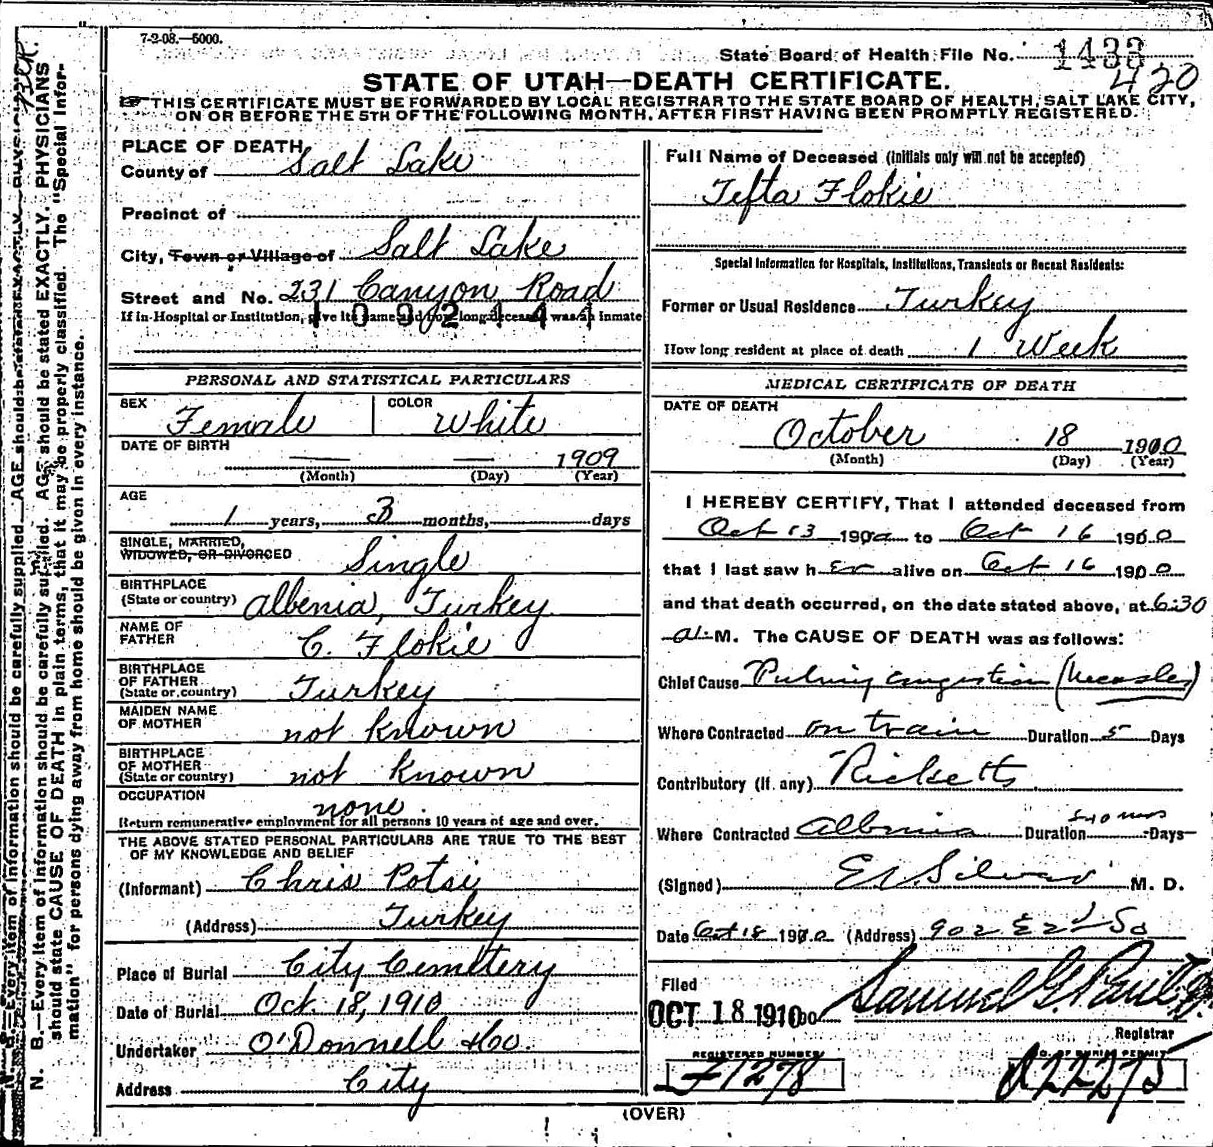 7-2-08.—5000.
State Board of Health File No. 1433
420
STATE OF UTAH—DEATH CERTIFICATE.
THIS CERTIFICATE MUST BE FORWARDED BY LOCAL REGISTRAR TO THE STATE BOARD OF HEALTH, SALT LAKE CITY,
ON OR BEFORE THE 5TH OF THE FOLLOWING MONTH, AFTER FIRST HAVING BEEN PROMPTLY REGISTERED.
PLACE OF DEATH
County of Salt Lake
Precinct of
City, Town or Village of Salt Lake
Street and No. 231 Canyon Road
If in Hospital or Institution, give its name and how long deceased was an inmate
1092141
PERSONAL AND STATISTICAL PARTICULARS
SEX Female COLOR White
DATE OF BIRTH — — 1909
(Month) (Day) (Year)
AGE
1 years, 3 months, days
SINGLE, MARRIED,
WIDOWED, OR DIVORCED Single
BIRTHPLACE
(State or country) Albenia, Turkey
NAME OF
FATHER C. Flokie
BIRTHPLACE
OF FATHER
(State or country) Turkey
MAIDEN NAME
OF MOTHER not known
BIRTHPLACE
OF MOTHER
(State or country) not known
OCCUPATION none.
Return remunerative employment for all persons 10 years of age and over.
THE ABOVE STATED PERSONAL PARTICULARS ARE TRUE TO THE BEST
OF MY KNOWLEDGE AND BELIEF
(Informant) Chris Potsi
(Address) Turkey
Place of Burial City Cemetery
Date of Burial Oct. 18, 1910
Undertaker O'Donnell & Co.
Address City
Full Name of Deceased (Initials only will not be accepted)
Tefta Flokie
Special Information for Hospitals, Institutions, Transients or Recent Residents:
Former or Usual Residence Turkey
How long resident at place of death 1 Week
MEDICAL CERTIFICATE OF DEATH
DATE OF DEATH
October 18 1910
(Month) (Day) (Year)
I HEREBY CERTIFY, That I attended deceased from
Oct 13 1910 to Oct 16 1910
that I last saw her alive on Oct 16 1910
and that death occurred, on the date stated above, at 6:30
a. M. The CAUSE OF DEATH was as follows:
Chief Cause congestion (Measles)
Where Contracted on train Duration 5 Days
Contributory (if any) Ricketts
Where Contracted Albenia Duration Days
(Signed) M. D.
Date Oct 18 1910 (Address) 902 E 2nd So
Filed
OCT 18 1910
Samuel G. Paul
Registrar
REGISTERED NUMBER
F1278
NO. OF BURIAL PERMIT
D22275
(OVER)
N. B.—Every item of information should be carefully supplied. AGE should be stated EXACTLY. PHYSICIANS
should state CAUSE OF DEATH in plain terms, that it may be properly classified. The "Special Infor-
mation" for persons dying away from home should be given in every instance.